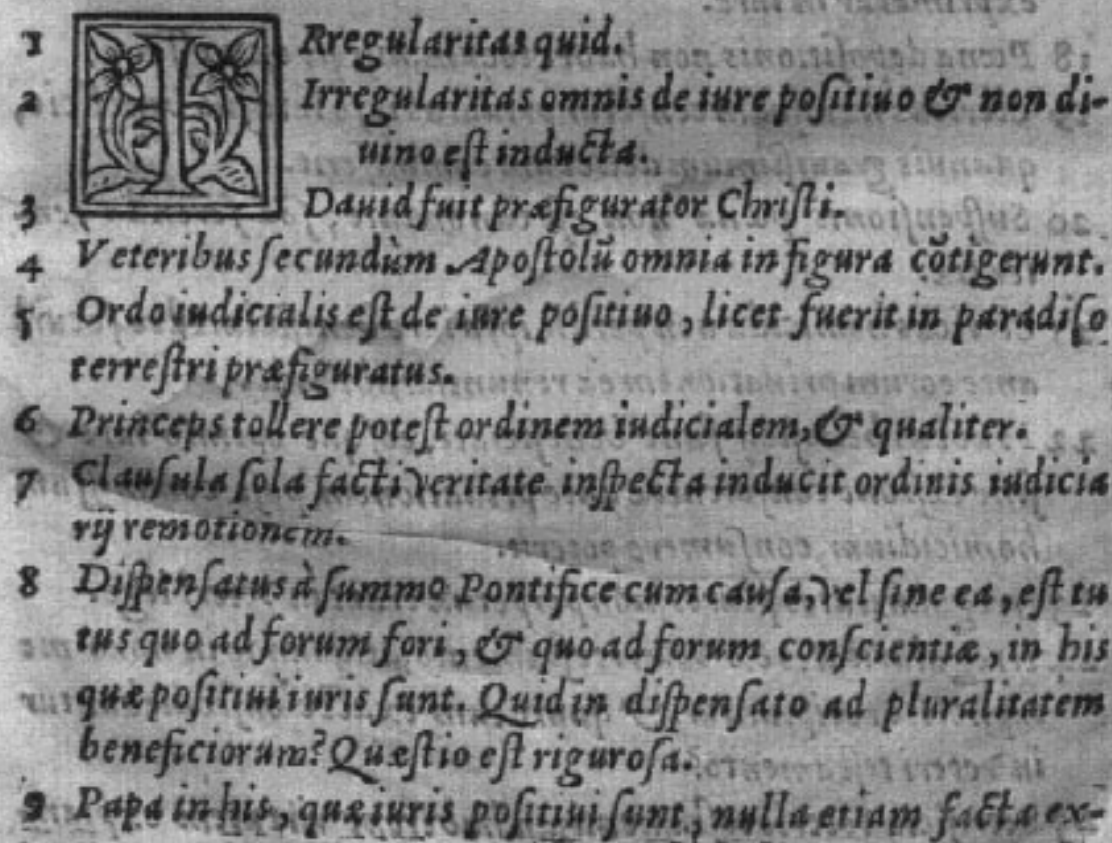 1 IRregularitas quid.
2 Irregularitas omnis de iure poſitiuo & non di-
uino eſt inducta.
3 Dauid fuit præfigurator Chriſti.
4 Veteribus ſecundùm Apoſtolũ omnia in figura cõtigerunt.
5 Ordo iudicialis eſt de iure poſitiuo, licet fuerit in paradiſo
terreſtri præfiguratus.
6 Princeps tollere poteſt ordinem iudicialem, & qualiter.
7 Clauſula ſola facti veritate inſpecta inducit ordinis iudicia
rij remotionem.
8 Diſpenſatus à ſummo Pontifice cum cauſa, vel ſine ea, eſt tu
tus quo ad forum fori, & quo ad forum conſcientiæ, in his
quæ poſitiui iuris ſunt. Quid in diſpenſato ad pluralitatem
beneficiorum? Quæſtio eſt riguroſa.
9 Papa in his, quæ iuris poſitiui ſunt, nulla etiam facta ex-